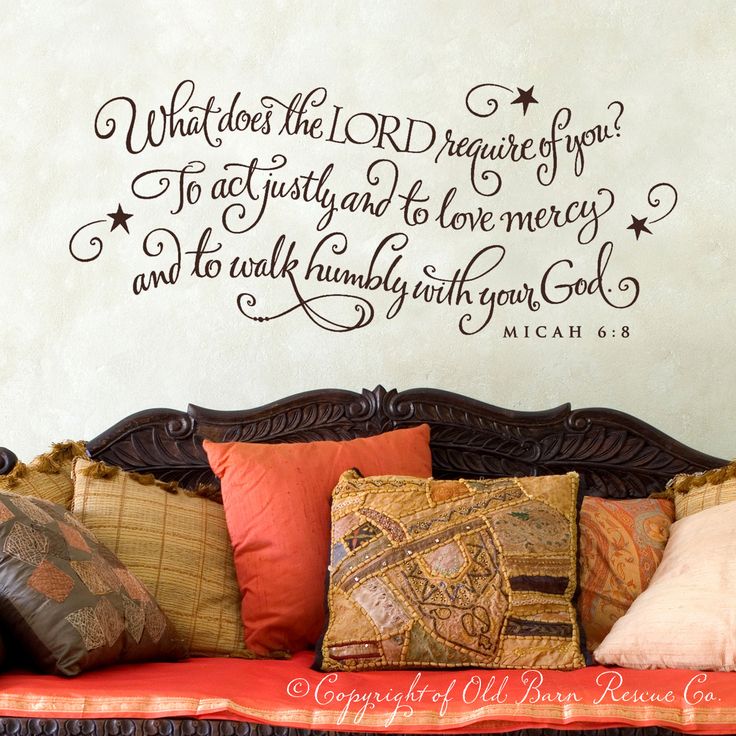 What does the LORD require of you?
To act justly and to love mercy
and to walk humbly with your God.
MICAH 6:8
© Copyright of Old Barn Rescue Co.